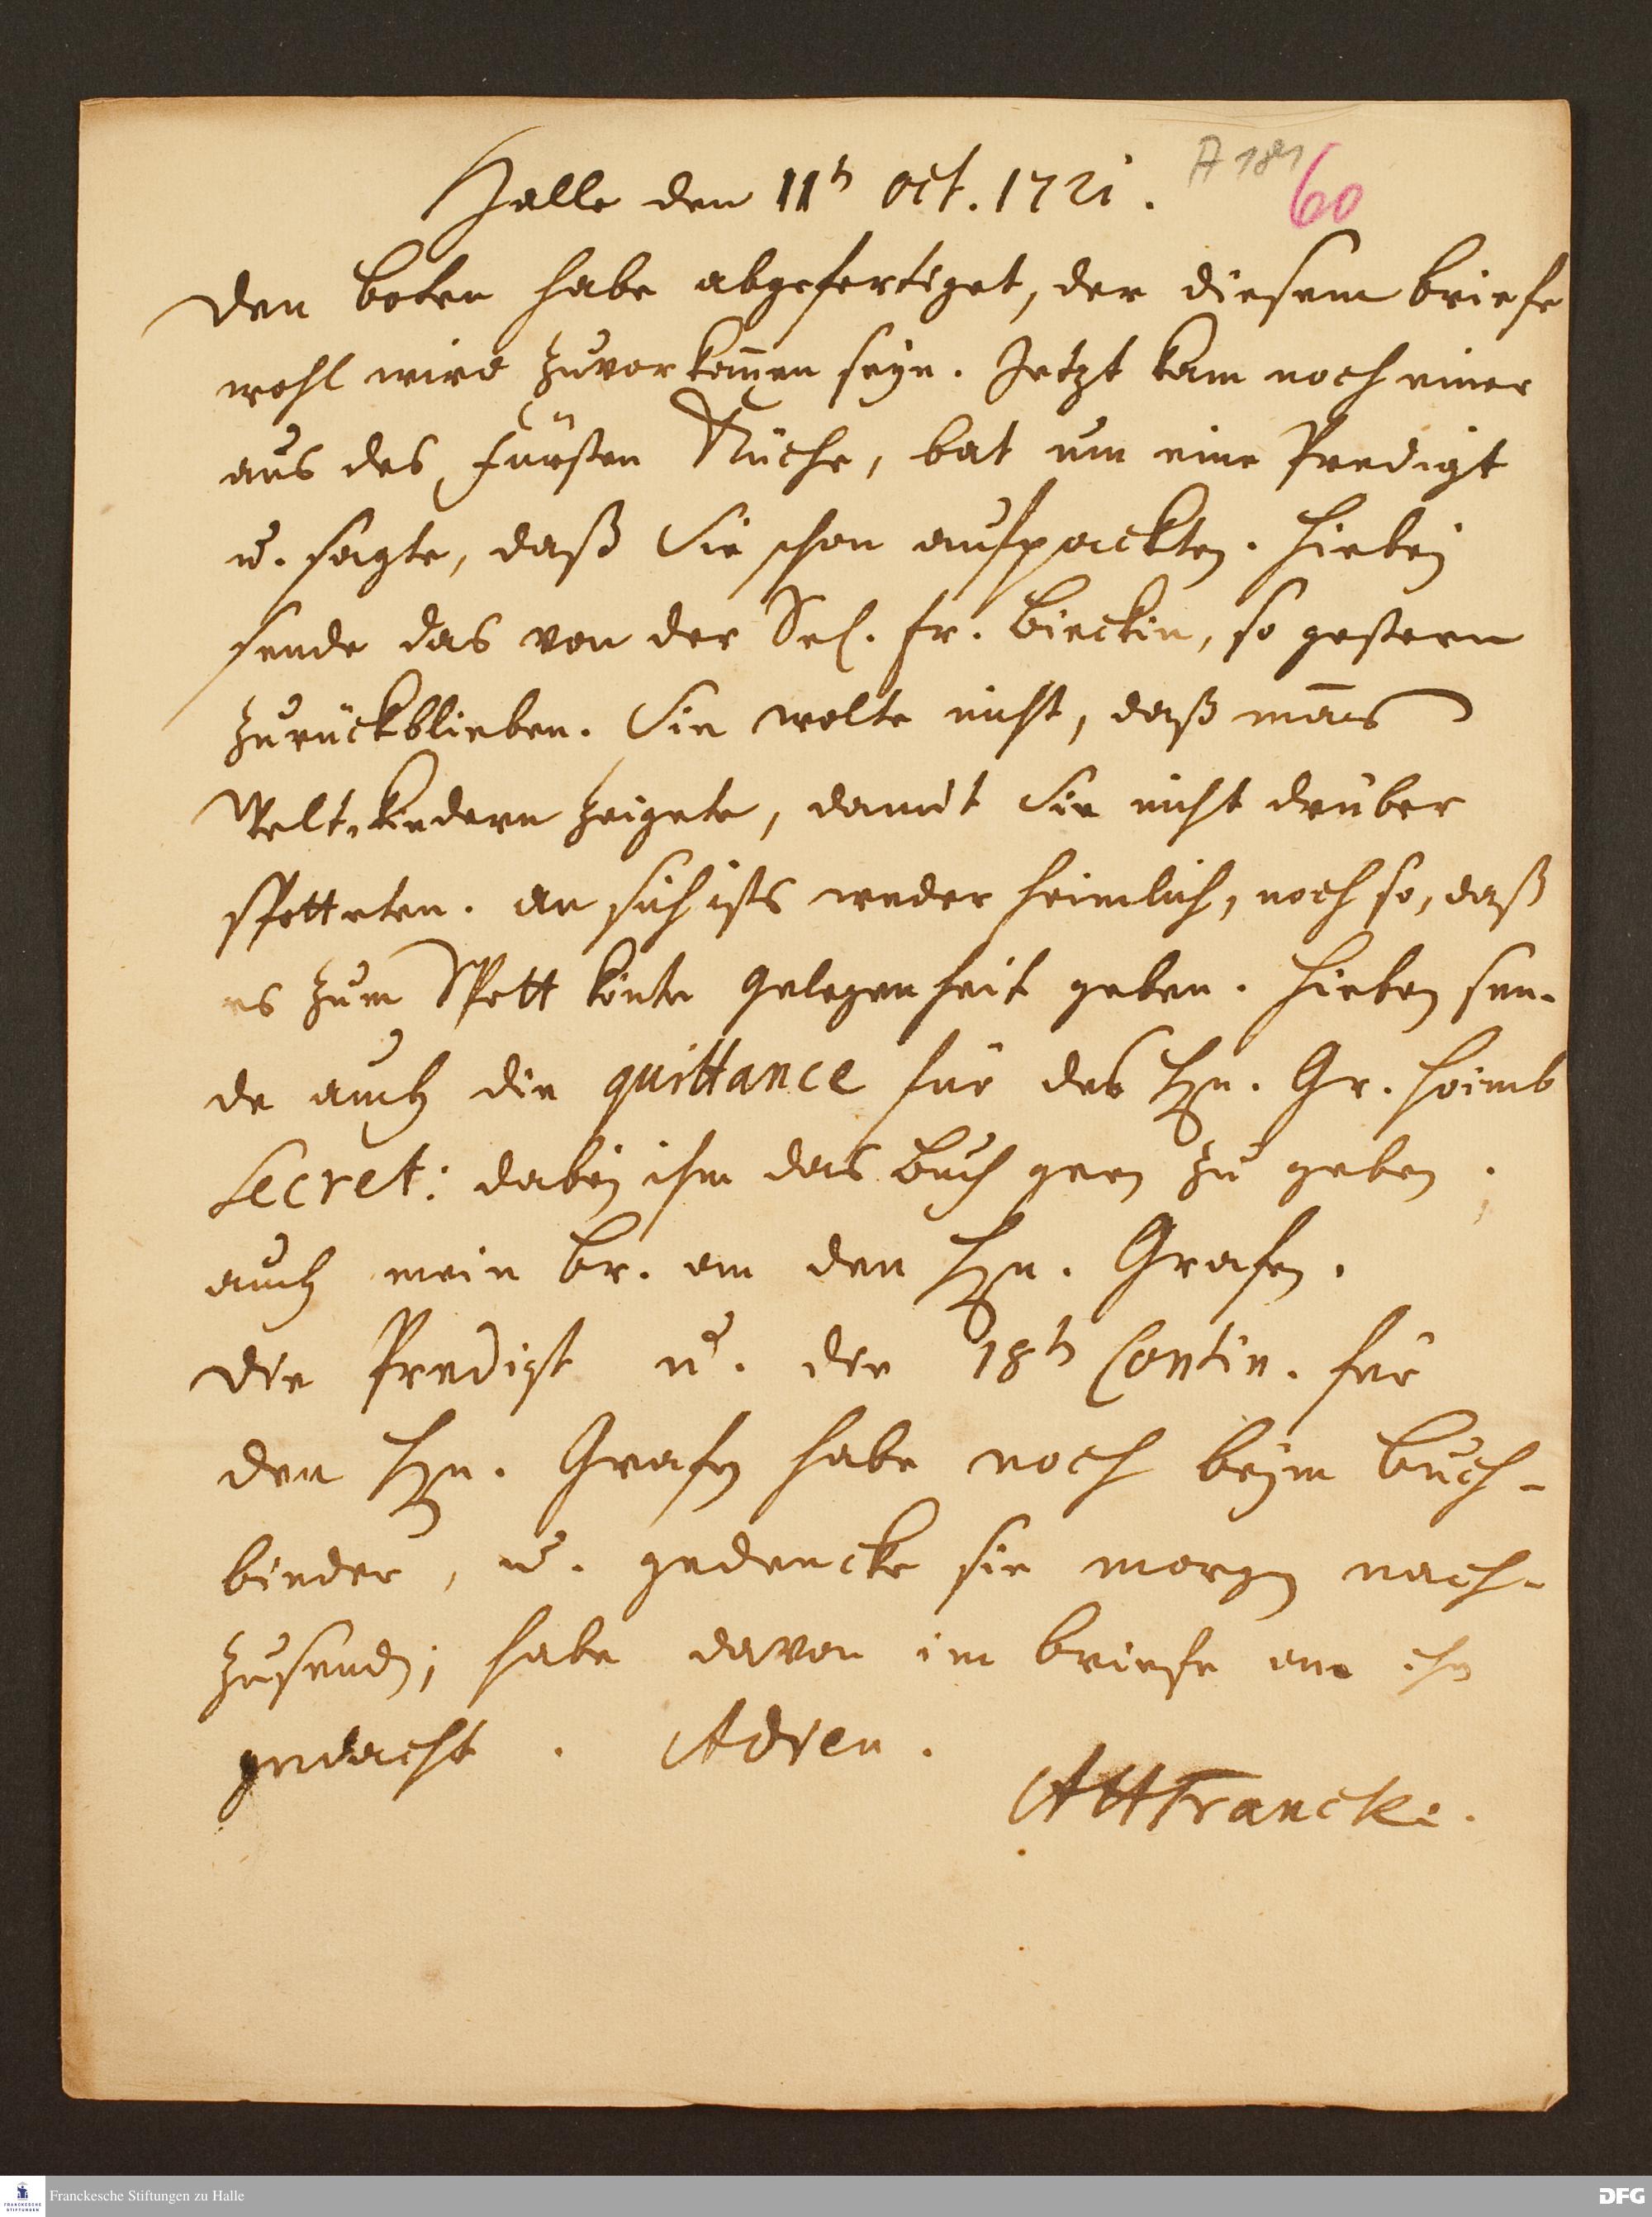 Halle den 11t Oct. 1721.
A 181
60
Den boten habe abgefertiget, der diesem briefe
wohl wird zuvorkom̄en seyn. Jetzt kam noch einer
aus des Fürsten Küche, bat um eine Predigt
u. sagte, daß Sie schon aufpackten. Hiebey
sende das von der Sel. Fr. Bieckin, so gestern
zurückblieben. Sie wolte nicht, daß man̄s
Welt-kindern zeigete, damit Sie nicht drüber
spotteten. an sich ists weder heimlich, noch so, daß
es zum Spott könte gelegenheit geben. Hiebey sen-
de auch die quittance für des Hn. Gr. Hoimb
Secret: dabey ihm das buch zu geben;
auch mein br. an den Hn. Grafen.
Die Predigt u. die 18t Contin. für
den Hn. Grafen habe noch beym buch-
binder, u. gedencke sie morgen nach-
zusenden; habe davon im briefe an ihn
gedacht. Adieu.
AHFrancke.
Franckesche Stiftungen zu Halle
FRANCKESCHE STIFTUNGEN
DFG